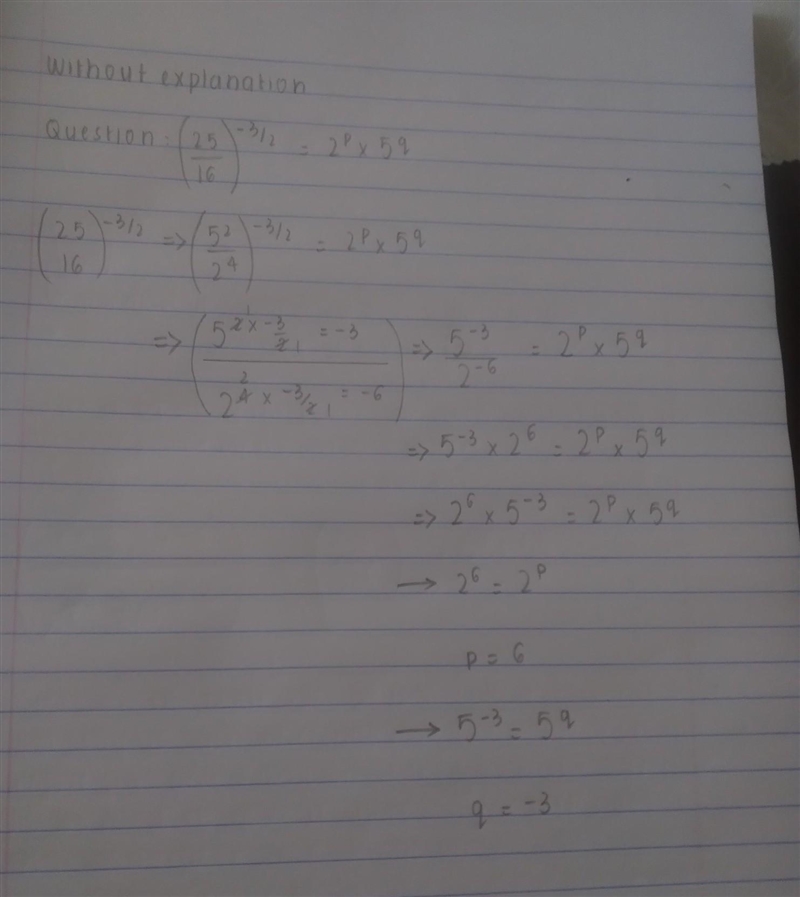 Without explanation
Question: (25/16)^-3/2 = 2^p × 5^q
(25/16)^-3/2 => (5^2/2^4)^-3/2 = 2^p × 5^q
=> (5^2 × -3/2 = -3 / 2^4 × -3/2 = -6) => 5^-3/2^-6 = 2^p × 5^q
=> 5^-3 × 2^6 = 2^p × 5^q
=> 2^6 × 5^-3 = 2^p × 5^q
→ 2^6 = 2^p
p = 6
→ 5^-3 = 5^q
q = -3